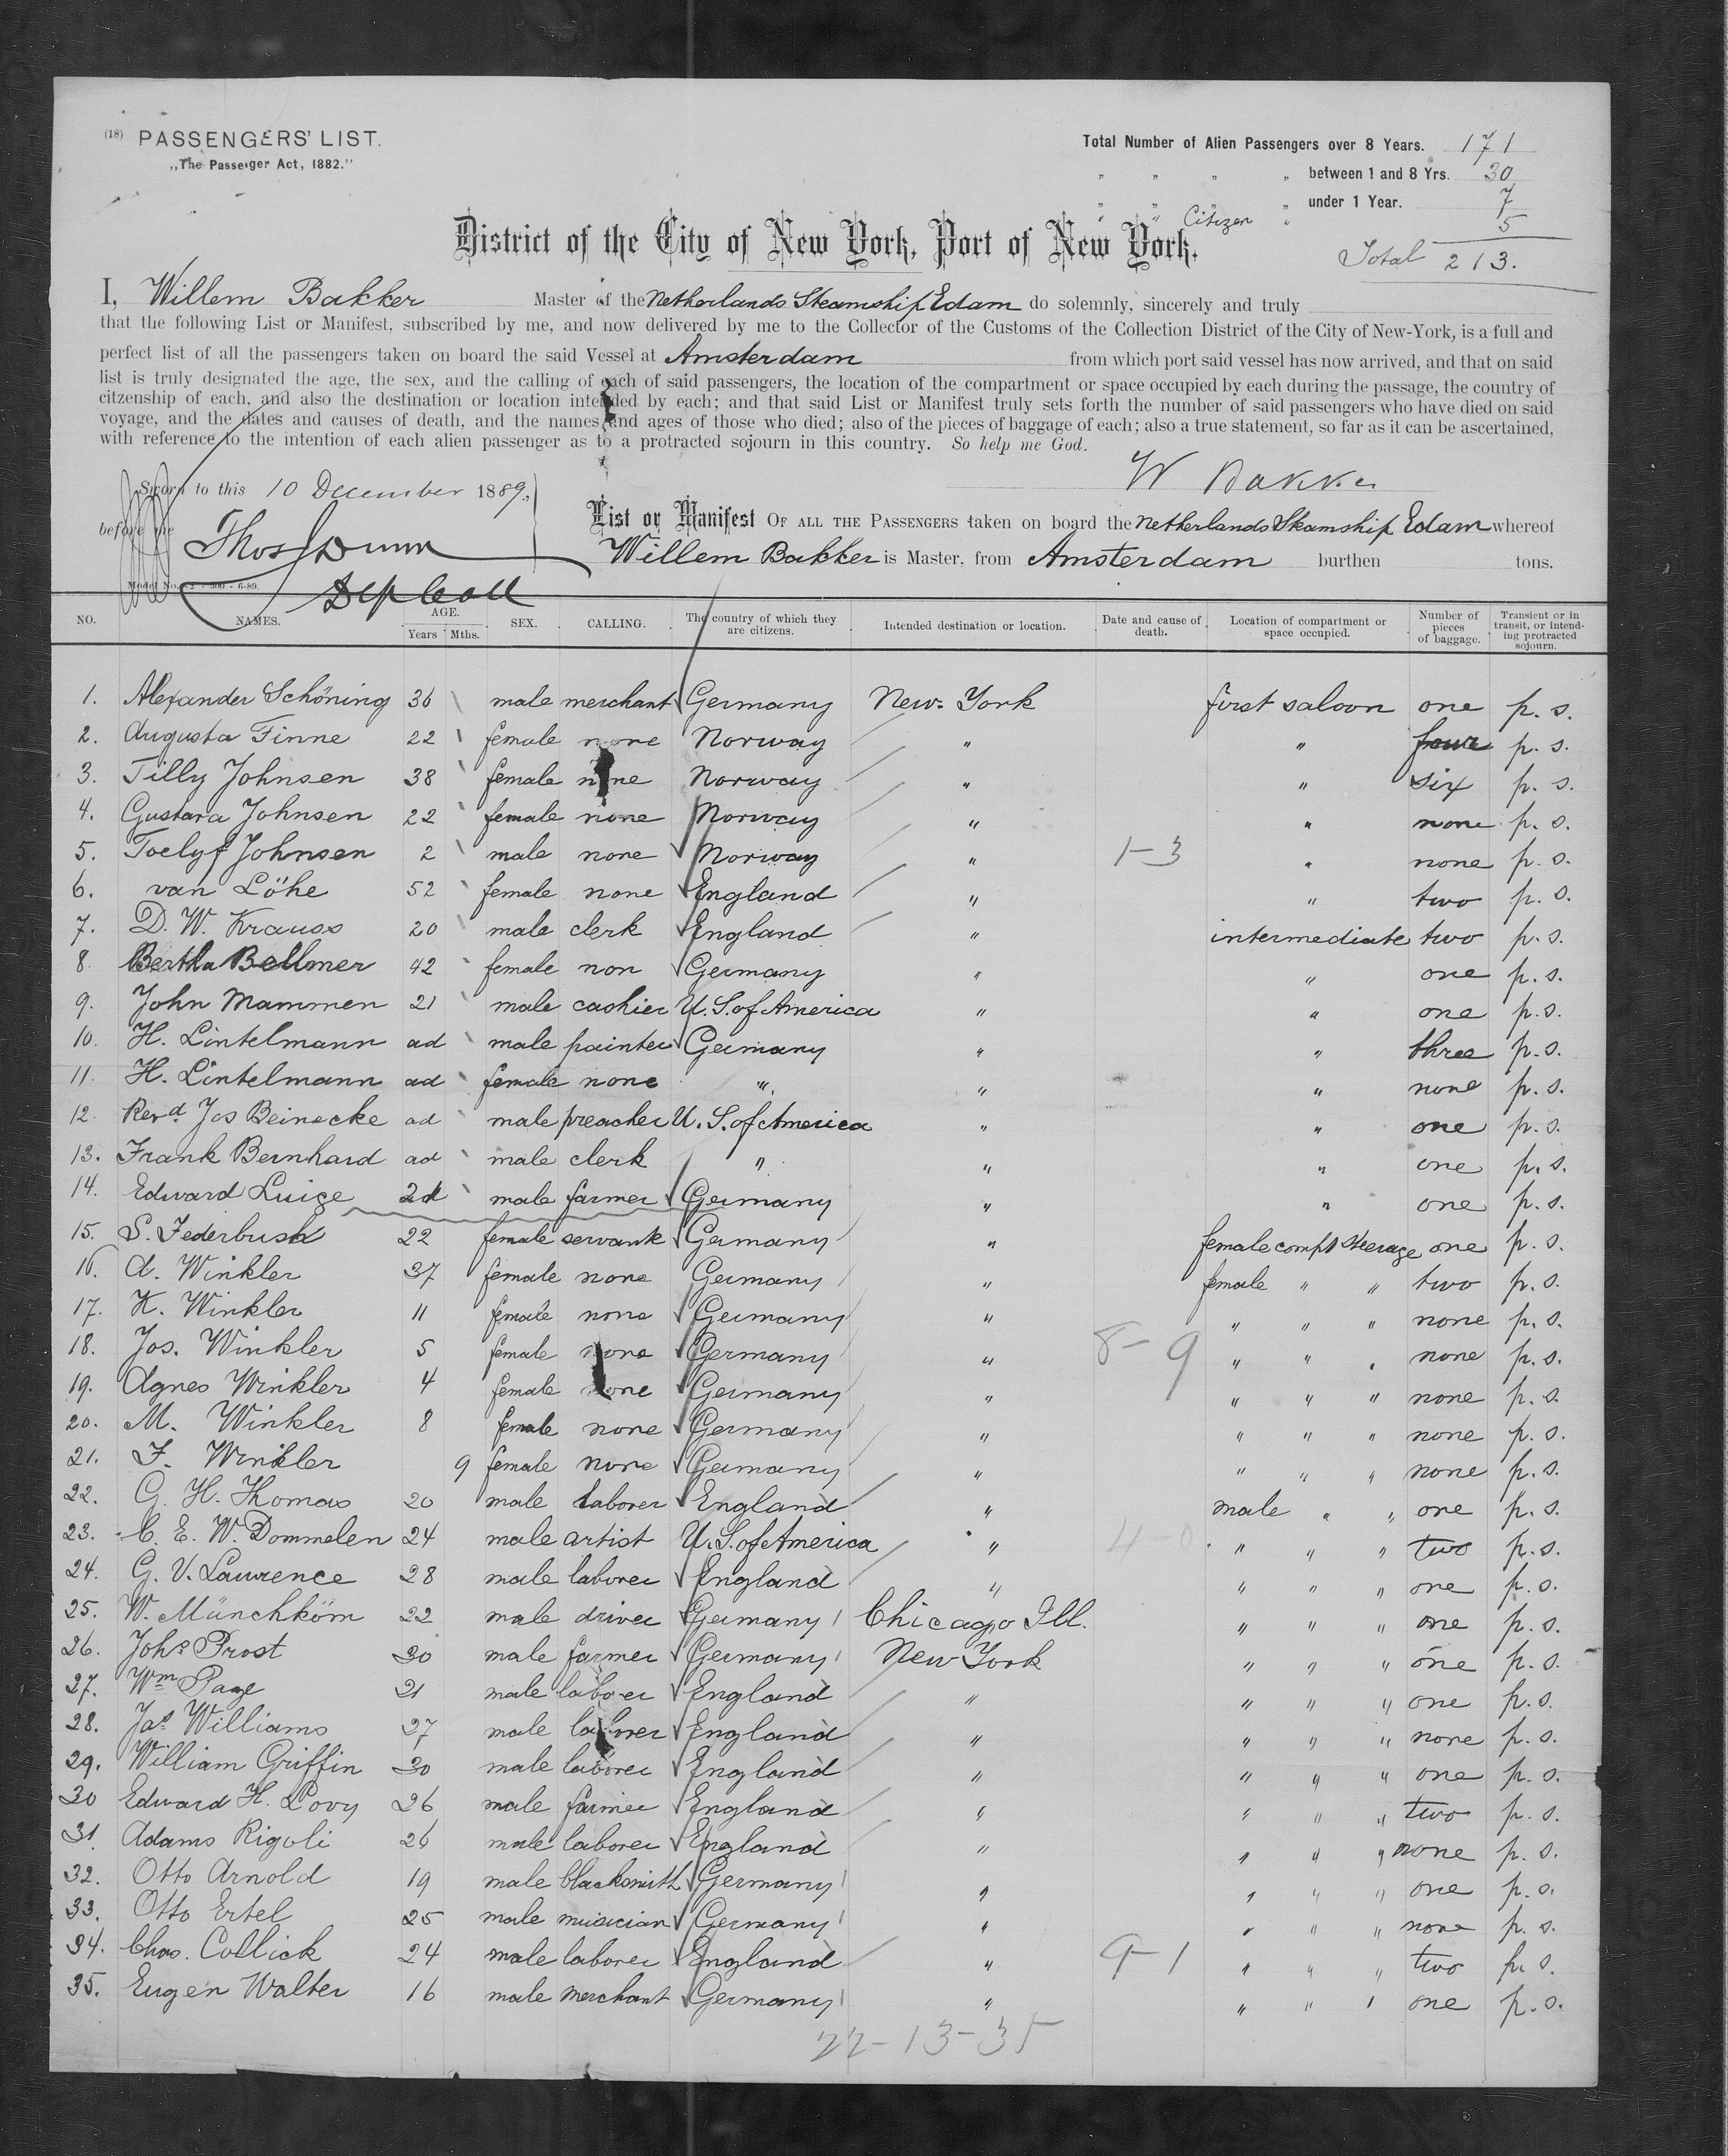 (18) PASSENGERS' LIST.
„The Passenger Act, 1882."
Total Number of Alien Passengers over 8 Years. 171
" " " " between 1 and 8 Yrs. 30
" " " " under 1 Year. 7
" " Citizen " 5
Total 213.
District of the City of New York, Port of New York.
I, Willem Bakker Master of the Netherlands Steamship Edam do solemnly, sincerely and truly
that the following List or Manifest, subscribed by me, and now delivered by me to the Collector of the Customs of the Collection District of the City of New-York, is a full and
perfect list of all the passengers taken on board the said Vessel at Amsterdam from which port said vessel has now arrived, and that on said
list is truly designated the age, the sex, and the calling of each of said passengers, the location of the compartment or space occupied by each during the passage, the country of
citzenship of each, and also the destination or location intended by each; and that said List or Manifest truly sets forth the number of said passengers who have died on said
voyage, and the dates and causes of death, and the names and ages of those who died; also of the pieces of baggage of each; also a true statement, so far as it can be ascertained,
with reference to the intention of each alien passenger as to a protracted sojourn in this country. So help me God.
W Bakker
Sworn to this 10 December 1889,
before me Thos Dunn
Dep Coll
List or Manifest OF ALL THE PASSENGERS taken on board the Netherlands Steamship Edam whereof
Willem Bakker is Master, from Amsterdam burthen tons.
NO. NAMES. AGE. Years Mths. SEX. CALLING. The country of which they are citizens. Intended destination or location. Date and cause of death. Location of compartment or space occupied. Number of pieces of baggage. Transient or in transit, or intending protracted sojourn.
1. Alexander Schöning 36 male merchant Germany New York first saloon one p. s.
2. Augusta Finne 22 female none Norway " " four p. s.
3. Tilly Johnsen 38 female none Norway " " six p. s.
4. Gustara Johnsen 22 female none Norway " " none p. s.
5. Toelyf Johnsen 2 male none Norway " 1-3 " none p. s.
6. van Löhe 52 female none England " " two p. s.
7. D. W. Krauss 20 male clerk England " intermediate two p. s.
8. Bertha Bellmer 42 female non Germany " " one p. s.
9. John Mammen 21 male cashier U. S. of America " " one p. s.
10. H. Lintelmann ad male painter Germany " " three p. s.
11. H. Lintelmann ad female none " " " none p. s.
12. Revd. Jos Beinecke ad male preacher U. S. of America " " one p. s.
13. Frank Bernhard ad male clerk " " " one p. s.
14. Edward Luige ad male farmer Germany " " one p. s.
15. S. Federbush 22 female servant Germany " female compt steerage one p. s.
16. A. Winkler 37 female none Germany " female " " two p. s.
17. K. Winkler 11 female none Germany " " " " none p. s.
18. Jos. Winkler 5 female none Germany " 8-9 " " " none p. s.
19. Agnes Winkler 4 female none Germany " " " " none p. s.
20. M. Winkler 8 female none Germany " " " " none p. s.
21. F. Winkler 9 female none Germany " " " " none p. s.
22. G. H. Thomas 20 male laborer England " male " " one p. s.
23. C. E. W. Dommelen 24 male artist U. S. of America " 4-0 " " " two p. s.
24. G. V. Lawrence 28 male laborer England " " " " one p. s.
25. W. Münchköm 22 male driver Germany Chicago Ill. " " " one p. s.
26. Johs Prost 30 male farmer Germany New York " " " one p. s.
27. Wm Page 21 male laborer England " " " " one p. s.
28. Jas Williams 27 male laborer England " " " " none p. s.
29. William Griffin 30 male laborer England " " " " one p. s.
30 Edward H. Lovy 26 male farmer England " " " " two p. s.
31. Adams Rigoli 26 male laborer England " " " " none p. s.
32. Otto Arnold 19 male blacksmith Germany " " " " one p. s.
33. Otto Ertel 25 male musician Germany " " " " none p. s.
34. Chas. Collick 24 male laborer England " 9-1 " " " two p. s.
35. Eugen Walter 16 male merchant Germany " " " " one p. s.
22-13-35